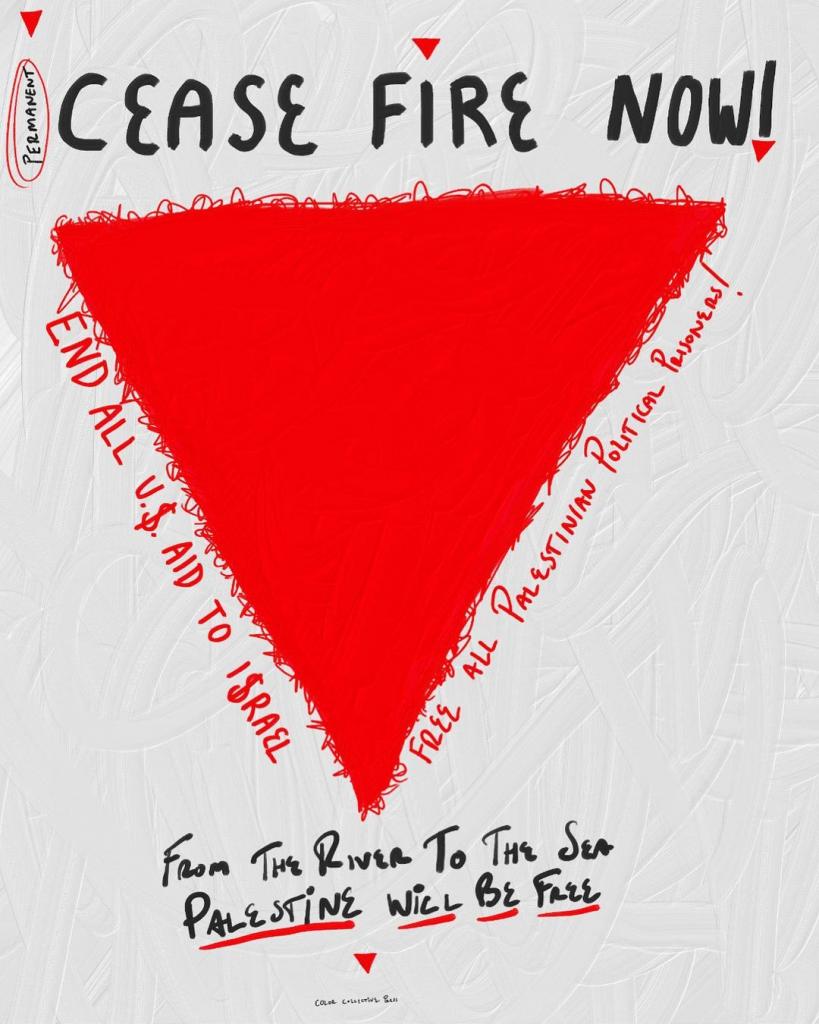 PERMANENT
CEASE FIRE NOW!
END ALL U.$. AID TO I$RAEL
FREE ALL PALESTINIAN POLITICAL PRISONERS!
FROM THE RIVER TO THE SEA
PALESTINE WILL BE FREE
COLOR COLLECTIVE PRESS